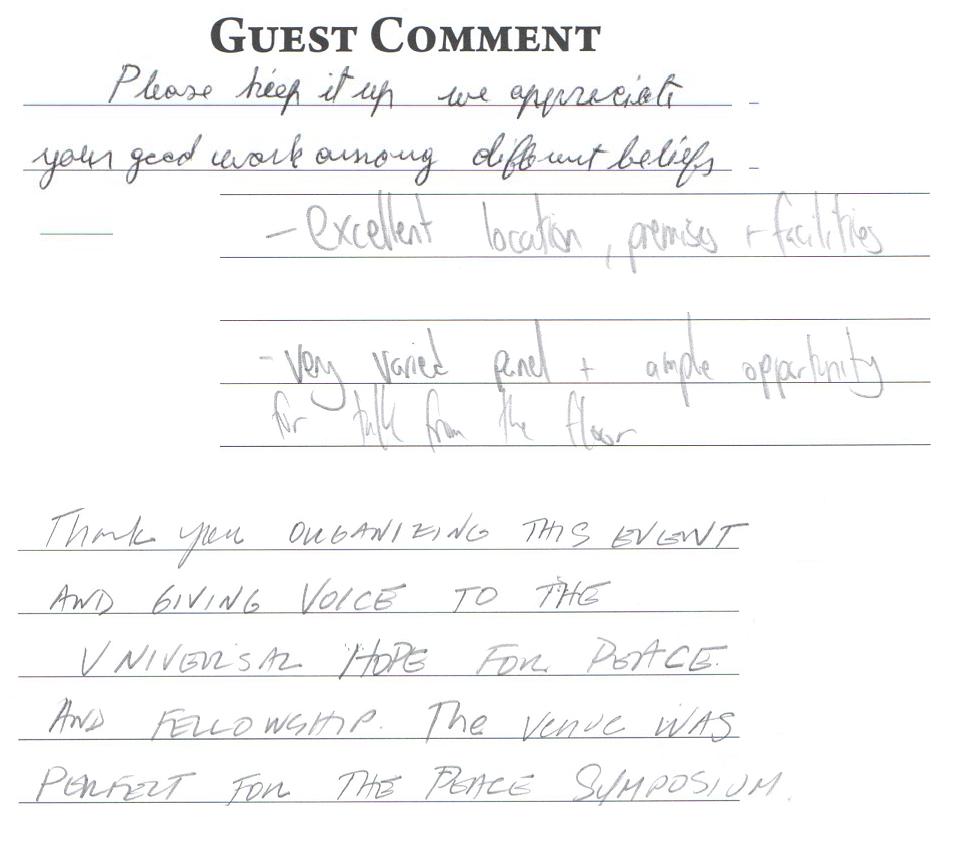 GUEST COMMENT
Please keep it up we appreciate
your good work among different beliefs
- excellent location, premises + facilities
- very varied panel + ample opportunity
for talk from the floor
Thank you ORGANIZING THIS EVENT
AND GIVING VOICE TO THE
UNIVERSAL HOPE FOR PEACE.
AND FELLOWSHIP. The venue WAS
PERFECT FOR THE PEACE SYMPOSIUM.